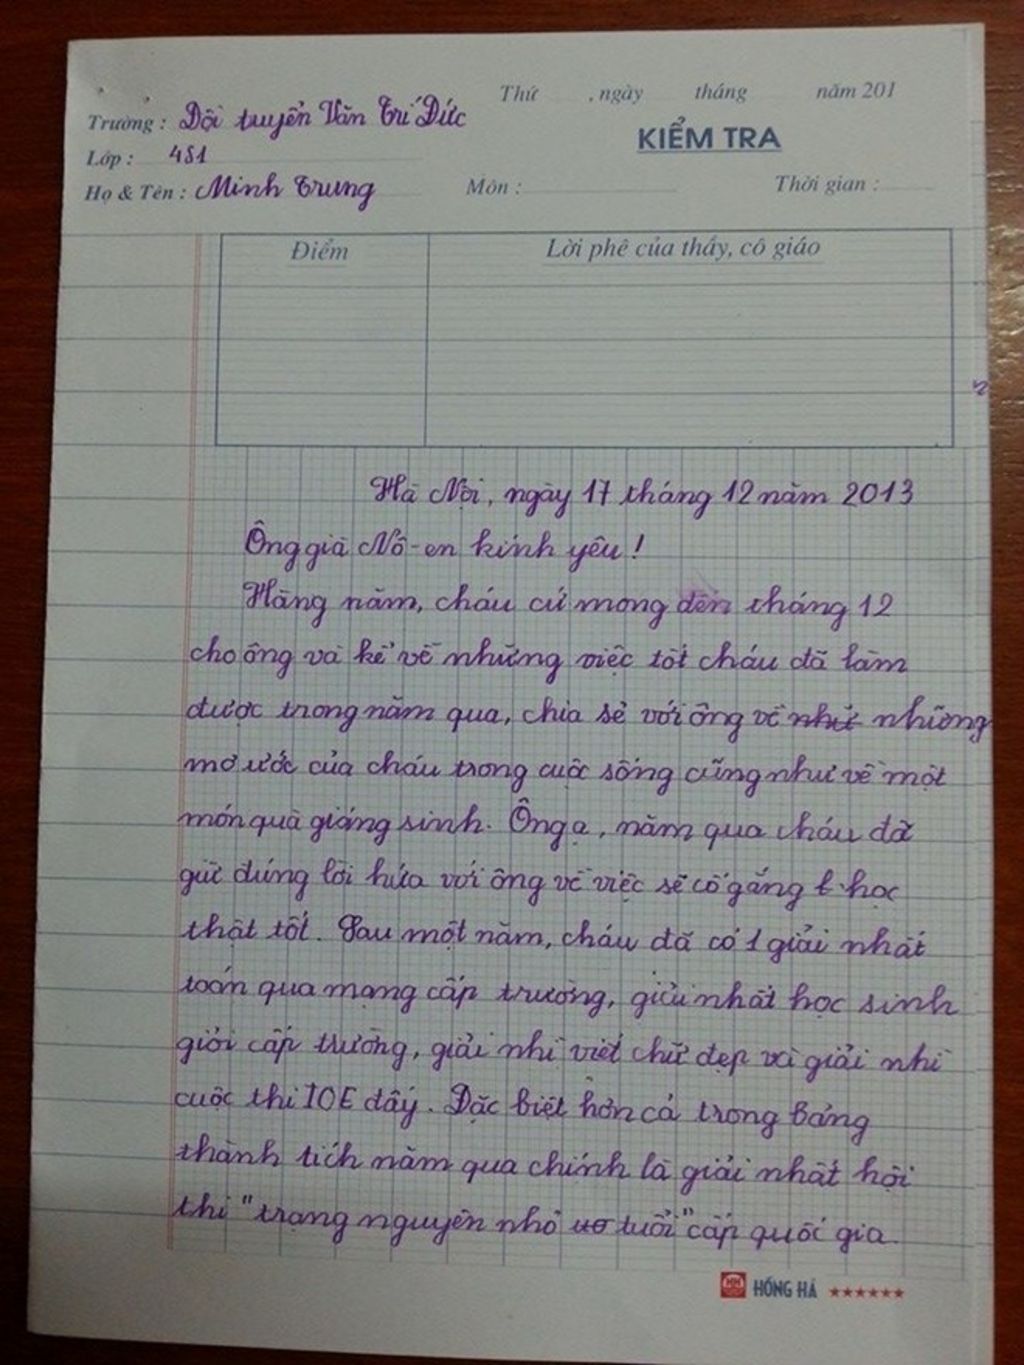 Thứ , ngày tháng năm 201
Trường : Đội tuyển Văn Trí Đức
KIỂM TRA
Lớp : 4S1
Họ & Tên : Minh Trung Môn : Thời gian :
Điểm Lời phê của thầy, cô giáo
Hà Nội, ngày 17 tháng 12 năm 2013
Ông già Nô-en kính yêu !
Hằng năm, cháu cứ mong đến tháng 12
cho ông và kể về những việc tốt cháu đã làm
được trong năm qua, chia sẻ với ông về như những
mơ ước của cháu trong cuộc sống cũng như về một
món quà giáng sinh. Ông ạ, năm qua cháu đã
giữ đúng lời hứa với ông về việc sẽ cố gắng học
thật tốt. Sau một năm, cháu đã có 1 giải nhất
toán qua mạng cấp trường, giải nhất học sinh
giỏi cấp trường, giải nhì viết chữ đẹp và giải nhì
cuộc thi IOE đấy. Đặc biệt hơn cả trong bảng
thành tích năm qua chính là giải nhất hội
thi "trạng nguyên nhỏ tuổi" cấp quốc gia.
HH HỒNG HÀ